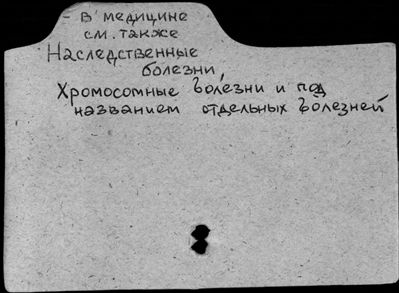 - в медицине
см. также
Наследственные
болезни,
Хромосомные болезни и под
названием отдельных болезней